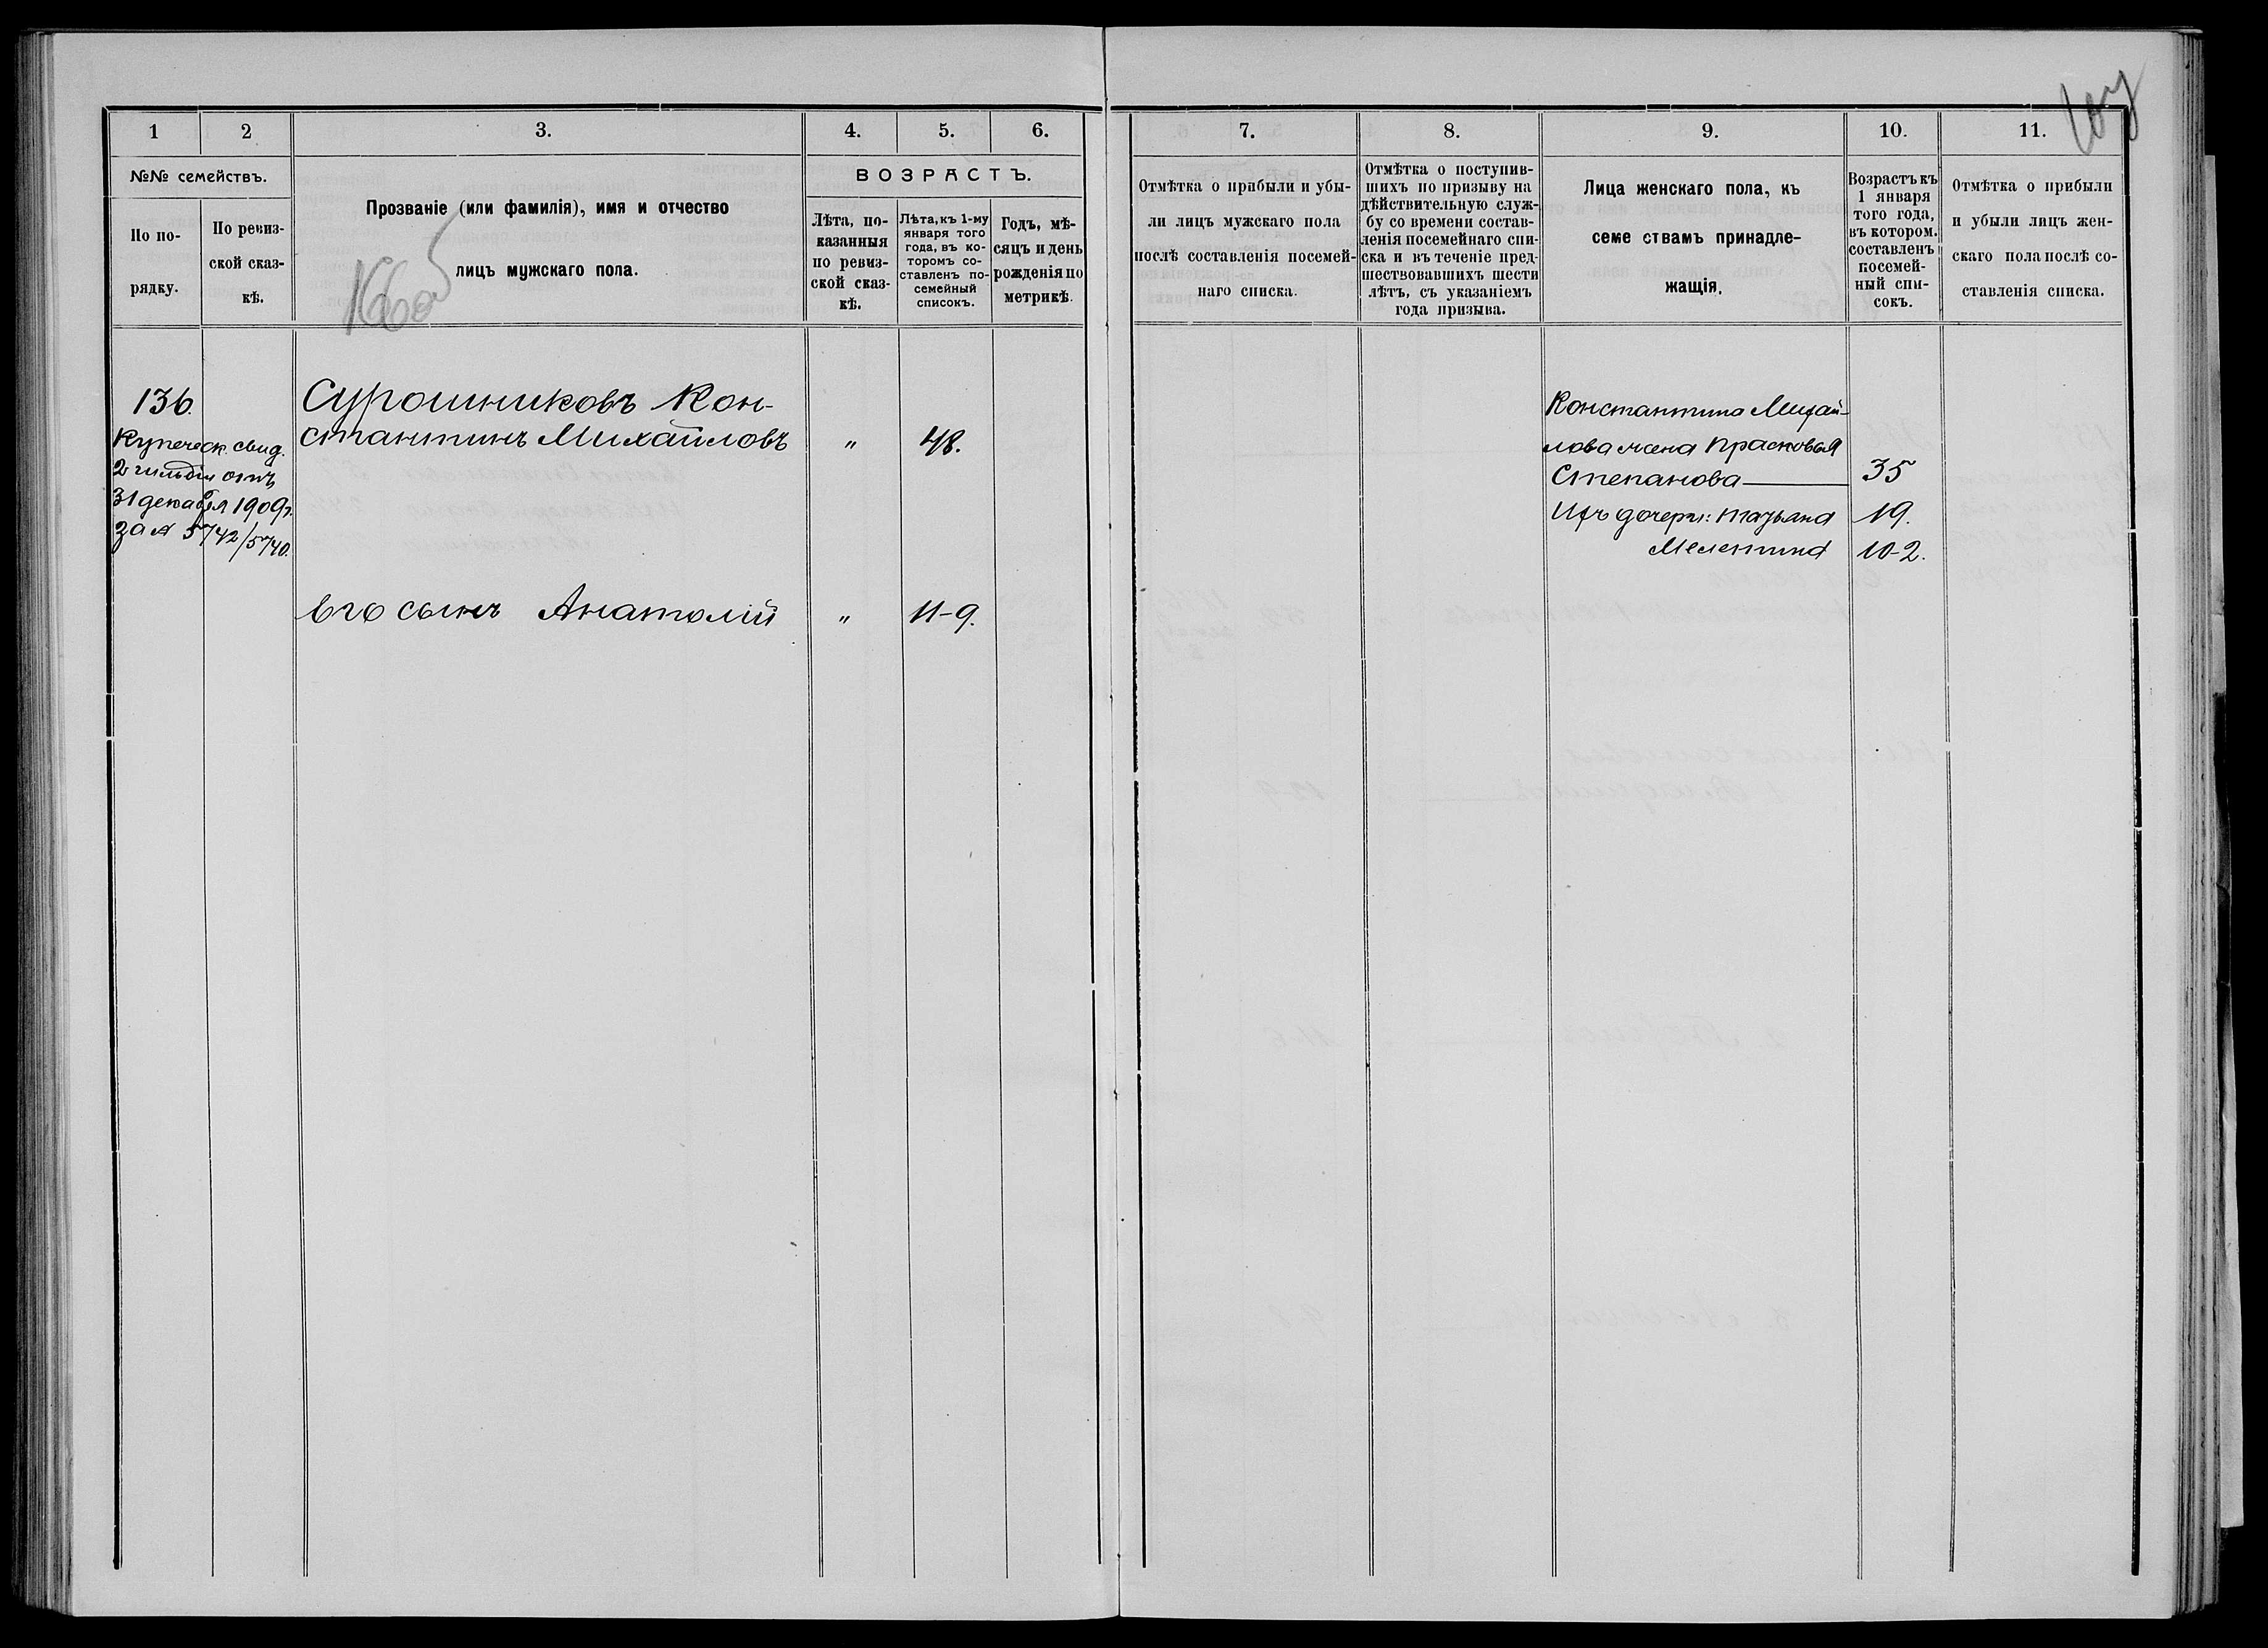 1
2
3.
4.
5.
6.
№№ семействъ.
По по-
рядку.
По ревиз-
ской сказ-
кѣ.
Прозваніе (или фамилія), имя и отчество
лицъ мужскаго пола.
ВОЗРАСТЪ.
Лѣта, по-
казанныя
по ревиз-
ской сказ-
кѣ.
Лѣта, къ 1-му
января того
года, въ ко-
торомъ со-
ставленъ по-
семейный
списокъ.
Годъ, мѣ-
сяцъ и день
рожденія по
метрикѣ.
136.
Купеческ. свид.
2 гильдіи отъ
31 декабря 1909 г.
за № 5742/5740.
Сурошниковъ Кон-
стантинъ Михайловъ
"
48.
Его сынъ Анатолій
"
11-9.
7.
8.
9.
10.
11.
Отмѣтка о прибыли и убы-
ли лицъ мужскаго пола
послѣ составленія посемей-
наго списка.
Отмѣтка о поступив-
шихъ по призыву на
дѣйствительную служ-
бу со времени состав-
ленія посемейнаго спи-
ска и въ теченіе пред-
шествовавшихъ шести
лѣтъ, съ указаніемъ
года призыва.
Лица женскаго пола, къ
семе ствамъ принадле-
жащія.
Возрастъ къ
1 января
того года,
въ котором.
составленъ
посемей-
ный спи-
сокъ.
Отмѣтка о прибыли
и убыли лицъ жен-
скаго пола послѣ со-
ставленія списка.
Константина Михай-
лова жена Прасковья
Степанова 35
Ихъ дочери: Татьана 19.
Мелентина 10-2.